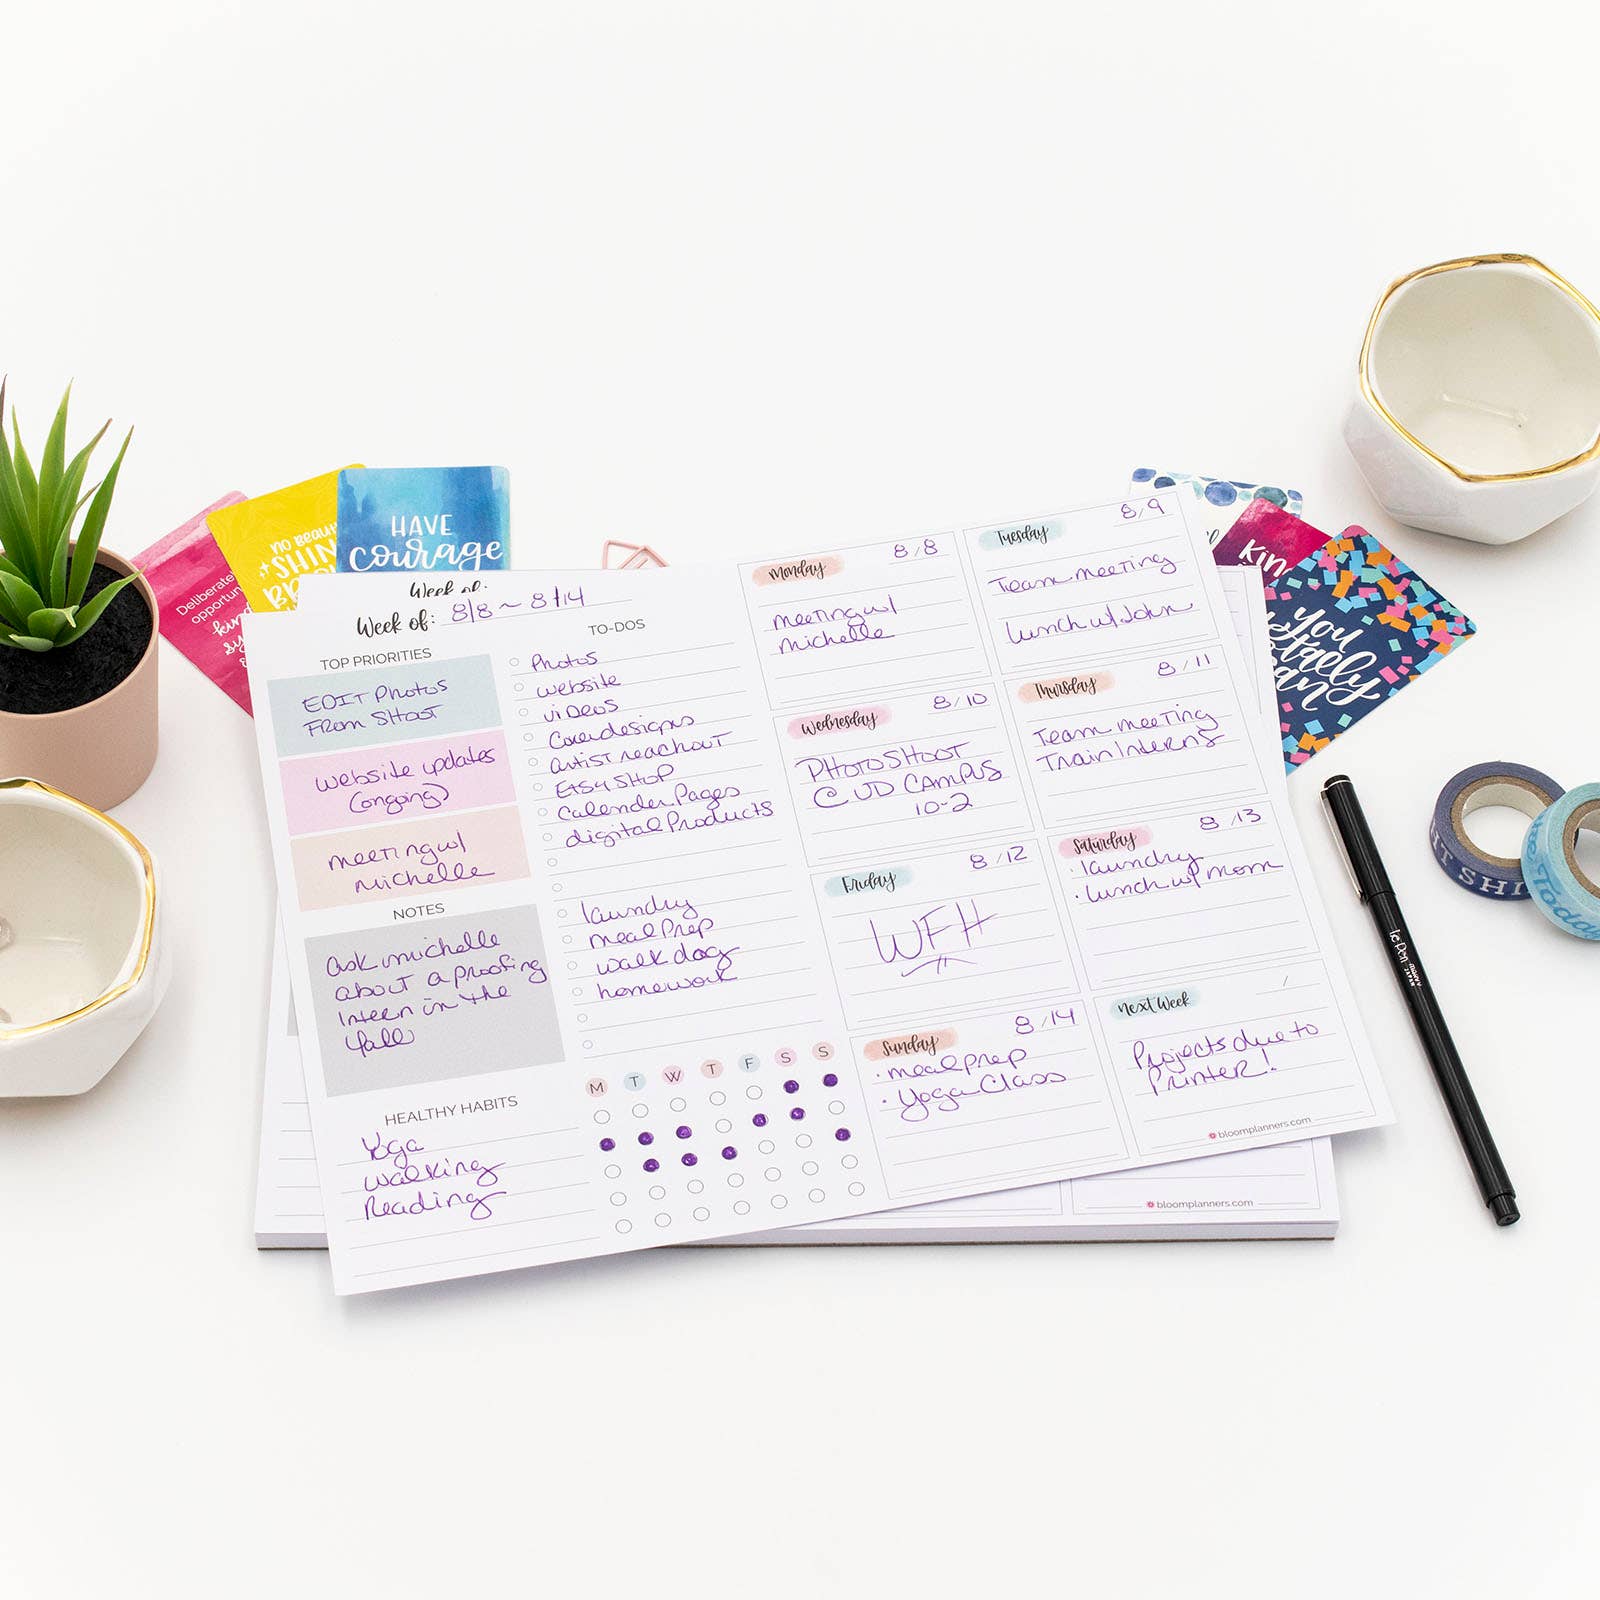 HAVE
courage
NO BEAUTY
SHIN
Deliberate
opportun
kin
Week of:
Week of: 8/8 ~ 8/14
TOP PRIORITIES
EDIT Photos
From SHOOT
website updates
(ongoing)
meeting w/
michelle
NOTES
ask michelle
about a proofing
Intern in the
fall
HEALTHY HABITS
Yoga
walking
Reading
TO-DOS
Photos
website
viDeos
Coverdesigns
artist reachout
Etsy SHOP
Calender Pages
digital Products
laundry
meal Prep
walk dog
homework
M T W T F S S
Monday 8/8
meeting w/
michelle
Tuesday 8/9
Team meeting
Lunch w/ John
Wednesday 8/10
PHOTOSHOOT
@ UD CAMPUS
10-2
Thursday 8/11
Team meeting
Train Interns
Friday 8/12
WFH
Saturday 8/13
· laundry
· Lunch w/ mom
Sunday 8/14
· meal prep
· Yoga Class
Next Week /
Projects due to
Printer!
bloomplanners.com
bloomplanners.com
Kin
you
totally
can
le Pen
SHI
Today